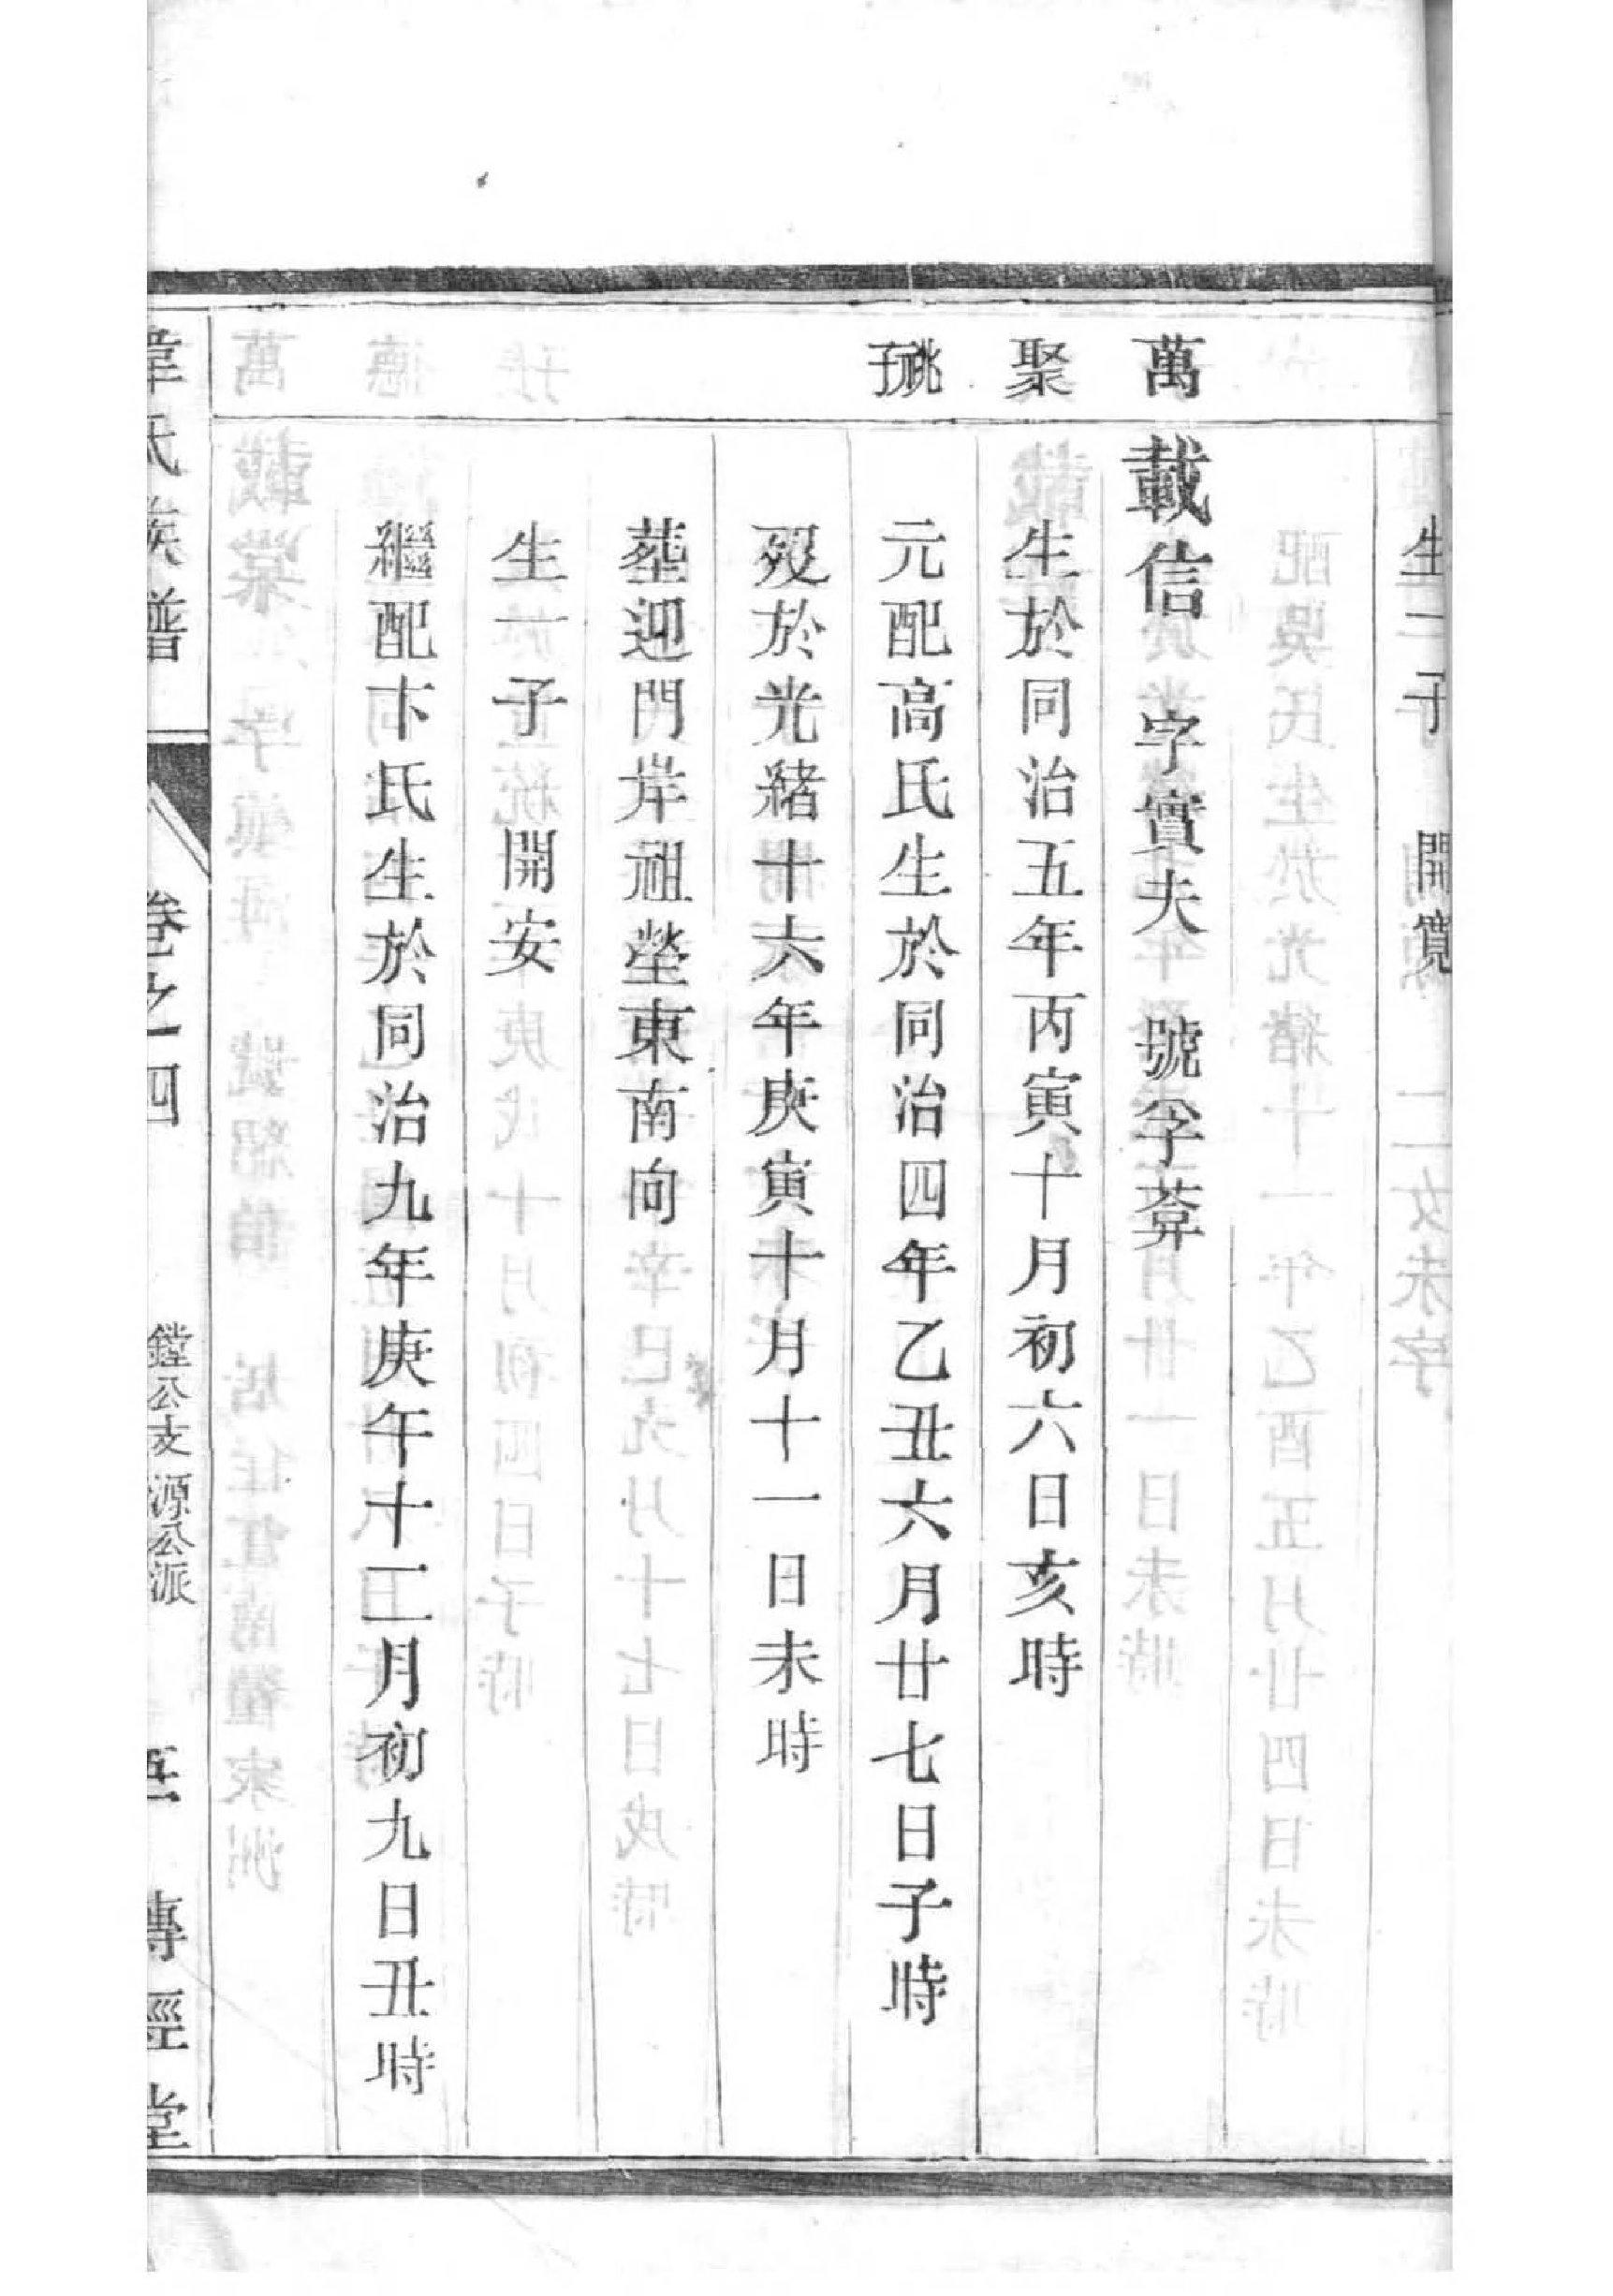 生一子　開寬
萬
載信　字實夫　號孚葊
聚
生於同治五年丙寅十月初六日亥時
祧子
元配高氏生於同治四年乙丑六月廿七日子時
歿於光緒十六年庚寅十月十一日未時
塟迎門岸祖塋東南向
生一子　開安
繼配卞氏生於同治九年庚午十二月初九日丑時
韋氏族譜　卷之四　鏜公支源公派　傳經堂